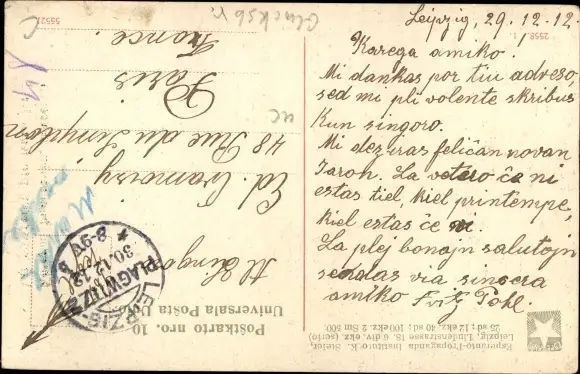 Leipzig, 29.12.12.
Karega amiko!
Mi dankas por tiu adreso,
sed mi pli volente skribus
kun sinjoro.
Mi deziras feliĉan novan
Jaron. La vetero ĉe ni
estas tiel, kiel printempe,
kiel estas ĉe vi.
La plej bonajn salutojn
sendas via sincera
amiko Fritz Pohl.
2558
Esperanto-Propaganda Instituto K. Steier,
Leipzig, Lindenstrasse 18. 6 div. ekz. (serio)
25 sd; 12 ekz. 40 sd; 100 ekz. 2 Sm 500
Poŝtkarto nro. 10
Universala Poŝta Unio
Ed.
48 Rue du Simplon
Paris
France.
LEIPZIG-
PLAGWITZ
30.12.12
8-9V
55521